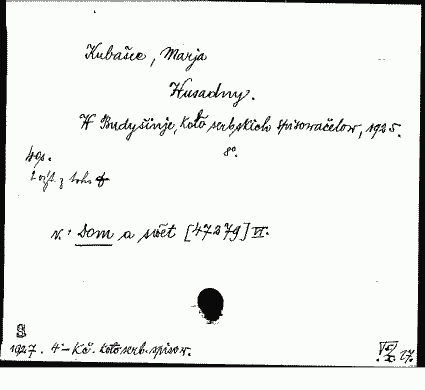 Kubašec, Marja
Wusadny.
W Budyšinje, Koło serbskich spisowaćelow, 1925.
8°.
40s.
v.: Dom a swět [47279] VI.
S
1927. 4-Kč. Koło serb. spisow.